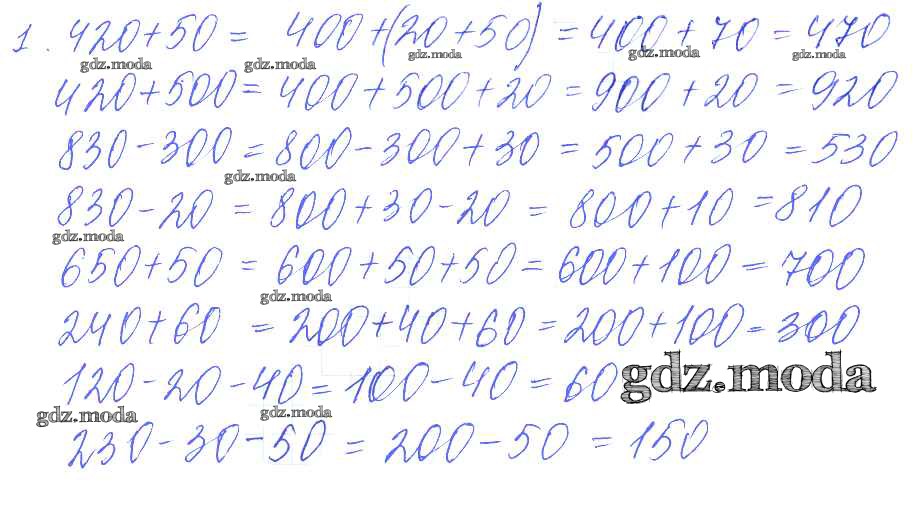 1. 420+50 = 400+(20+50) = 400+70 = 470
gdz.moda gdz.moda gdz.moda gdz.moda gdz.moda
420+500 = 400+500+20 = 900+20 = 920
830-300 = 800-300+30 = 500+30 = 530
gdz.moda
830-20 = 800+30-20 = 800+10 = 810
gdz.moda
650+50 = 600+50+50 = 600+100 = 700
gdz.moda
240+60 = 200+40+60 = 200+100 = 300
120-20-40 = 100-40 = 60 gdz.moda
gdz.moda gdz.moda
230-30-50 = 200-50 = 150